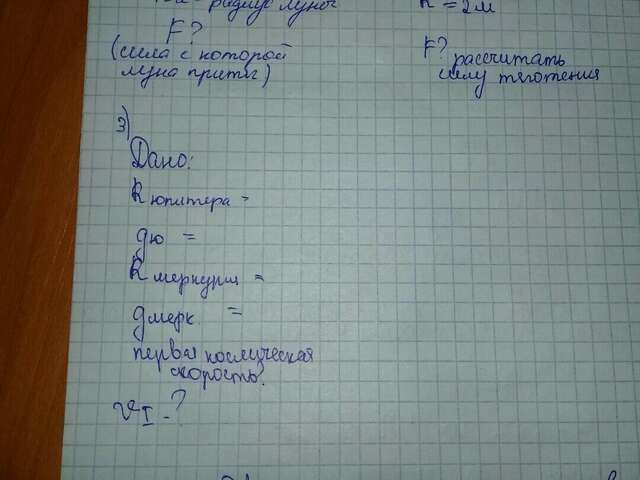 радиус луны
R = 2м
F?
(сила с которой
луна притяг)
F? рассчитать
силу тяготения
3)
Дано:
R юпитера =
gю =
R меркурия =
gмерк. =
первая космическая
скорость.
VI - ?